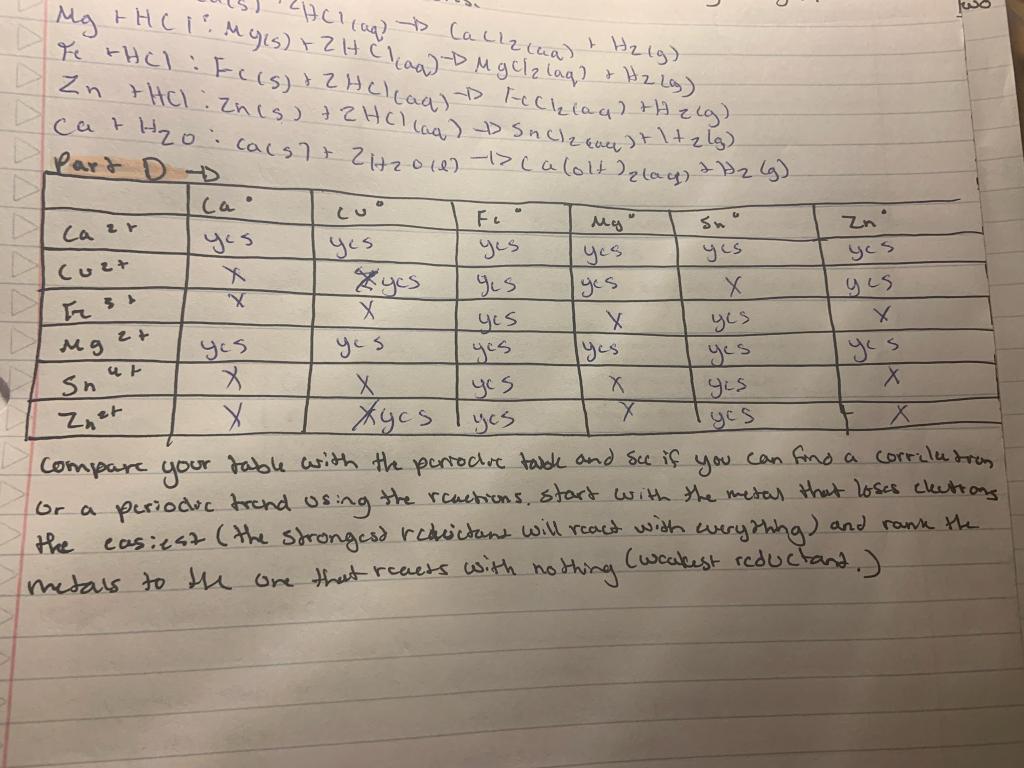 2HCl(aq) → CaCl2(aq) + H2(g)
Mg + HCl : Mg(s) + 2HCl(aq) → MgCl2(aq) + H2(g)
Fe + HCl : Fe(s) + 2HCl(aq) → FeCl2(aq) + H2(g)
Zn + HCl : Zn(s) + 2HCl(aq) → SnCl2(aq) + H2(g)
Ca + H2O : Ca(s) + 2H2O(l) → Ca(OH)2(aq) + H2(g)
Part D →
Ca° Cu° Fe° Mg° Sn° Zn°
Ca2+ yes yes yes yes yes yes
Cu2+ X yes yes yes X yes
Fe3+ X X yes X yes X
Mg2+ yes yes yes yes yes yes
Sn4+ X X yes X yes X
Zn2+ X yes yes X yes X
compare your table with the periodic table and see if you can find a correlation
or a periodic trend using the reactions. start with the metal that loses electrons
the easiest (the strongest reductant will react with everything) and rank the
metals to the one that reacts with nothing (weakest reductant.)